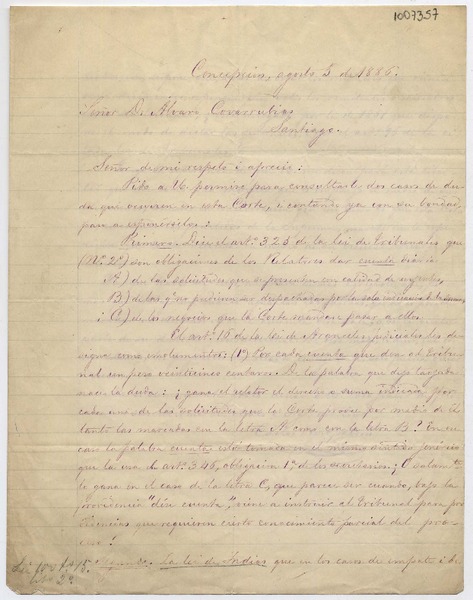 1007357
Concepcion, agosto 5 de 1886.
Señor D. Alvaro Covarrubias
Santiago.
Señor de mi respeto i aprecio:
Pido a U. permiso para consultarle dos casos de du-
da que ocurren en esta Corte, i contando ya con su bondad,
paso a esponérselos:
Primero. Dice el art.º 325 de la lei de Tribunales que
(N.º 2º) son obligaciones de los Relatores dar cuenta diaria
A) de las solicitudes que se presenten en calidad de urjentes,
B) de las q.e no pudieren ser despachadas por la sola
i C) de los negocios que la Corte mandare pasar a ellos.
El art.º 16 de la lei de Aranceles judiciales de-
signa como emolumentos: (1º) Por cada cuenta que den al Tribu-
nal un peso veinticinco centavos. De la palabra que dejo
nace la duda: ¿gana el relator el derecho o suma indicada por
cada una de las solicitudes que la Corte provee por medio de él
tanto las marcadas con la letra A como con la letra B? En cu-
yo caso la palabra cuenta está tomada en el mismo sentido jurídico
que la usa el art.º 346, obligacion 1ª de los secretarios; ¿O solamente
la gana en el caso de la letra C, que parece ser cuando, bajo la
providencia "dése cuenta", viene a instruir al Tribunal para pro-
videncias que requieren cierto conocimiento parcial del pro-
ceso?
Segundo. La lei de Indias que en los casos de empate